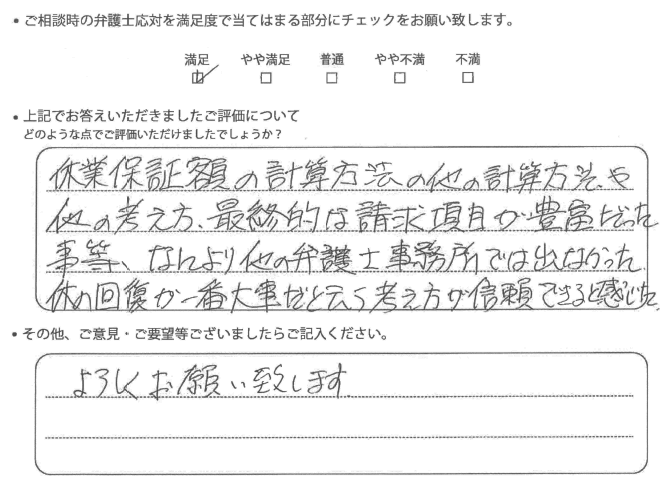 • ご相談時の弁護士応対を満足度で当てはまる部分にチェックをお願い致します。
満足 やや満足 普通 やや不満 不満
• 上記でお答えいただきましたご評価について
どのような点でご評価いただけましたでしょうか？
休業保証額の計算方法の他の計算方法、や
他の考え方、最終的な請求項目が豊富だった
事等、なんより他の弁護士事務所では出なかった
体の回復が一番大事だと云う考え方が信頼できると感じた。
• その他、ご意見・ご要望等ございましたらご記入ください。
よろしくお願い致します。